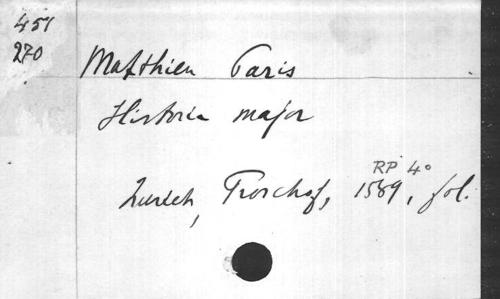 451
270
Matthieu Paris
Historia major
RP 4°
Zurich, Froschof, 1589, fol.